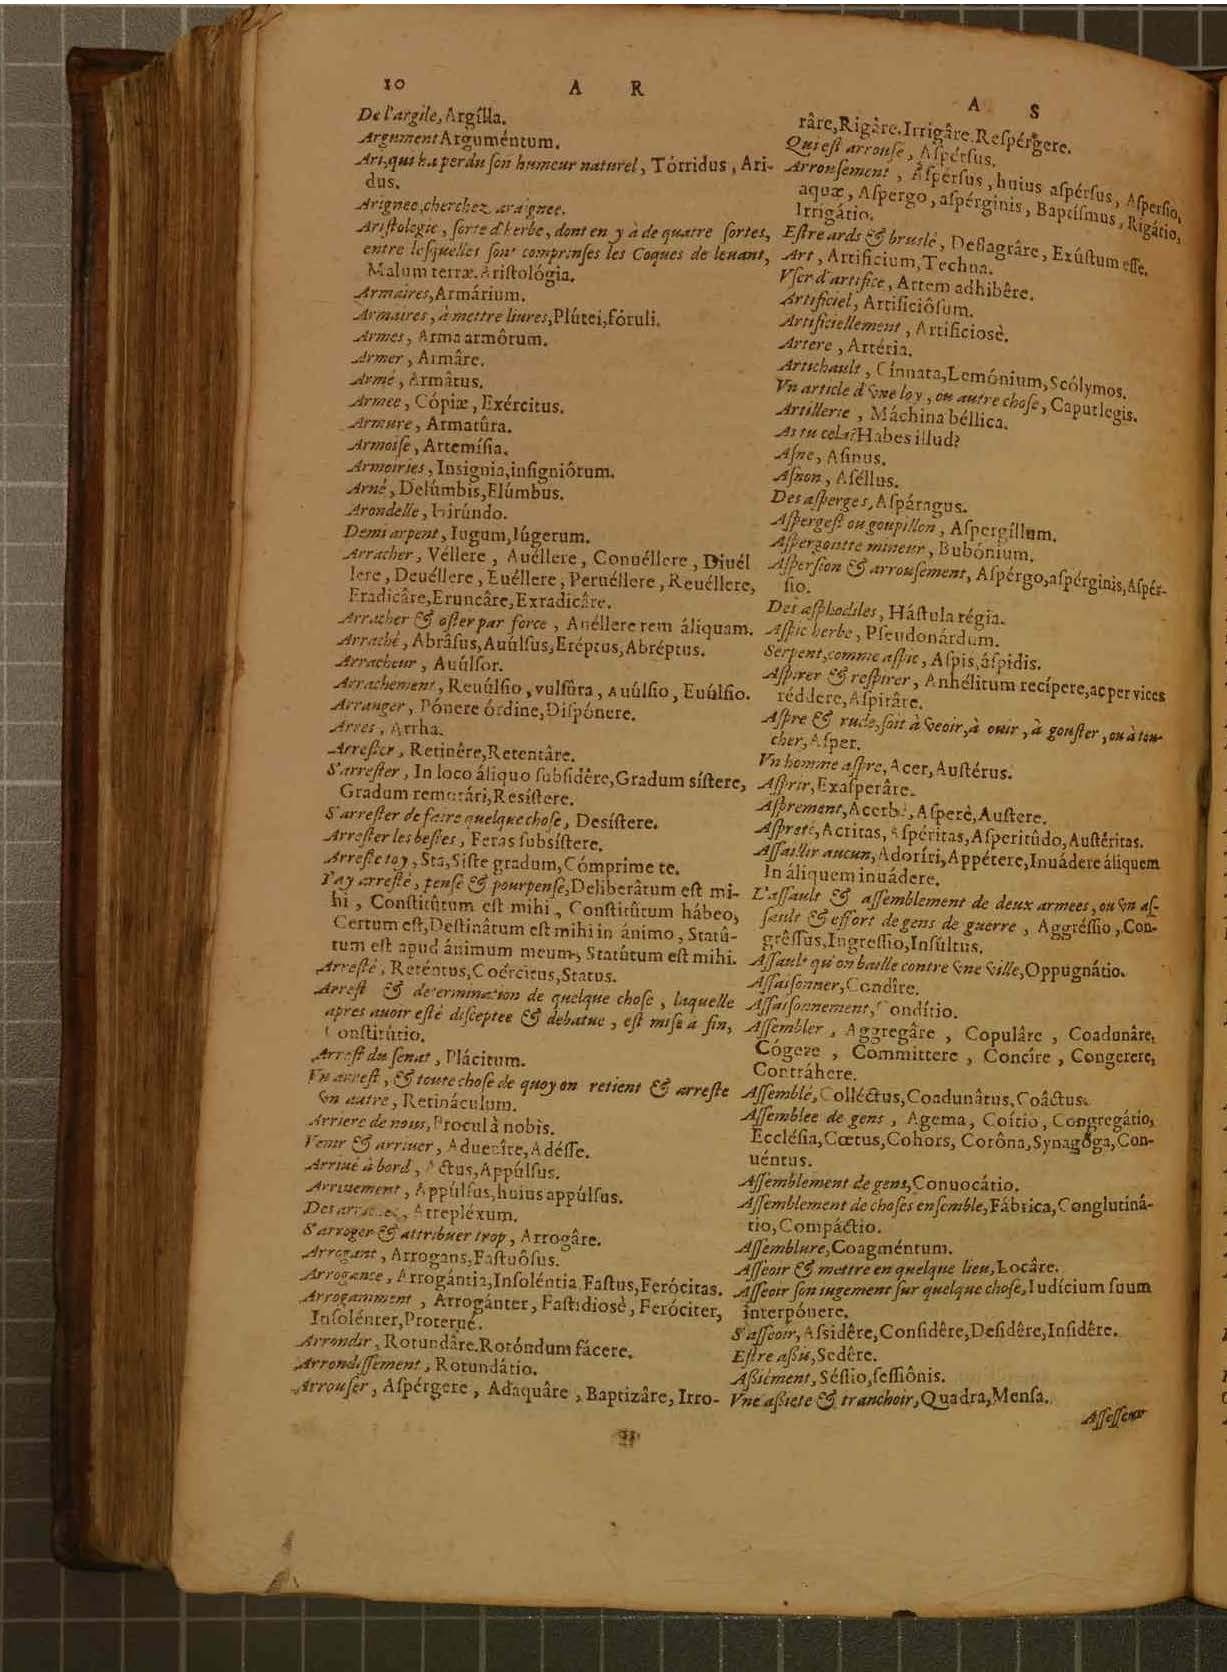 10 A R
De l'argile, Argílla.
Argument Arguméntum.
Ari, qui ha perdu ſon humeur naturel, Tórridus, Ari-
dus.
Arignee, cherchez araignee.
Ariſtologie, ſorte d'herbe, dont en y à de quatre ſortes,
entre leſquelles ſont comprinſes les Coques de leuant,
Malum terræ. Ariſtológia.
Armaires, Armárium.
Armaires, à mettre liures, Plútei, fóruli.
Armes, Arma armôrum.
Armer, Armâre.
Armé, Armâtus.
Armee, Cópiæ, Exércitus.
Armure, Armatûra.
Armoiſe, Artemíſia.
Armoiries, Inſignia, inſigniôrum.
Arné, Delúmbis, Elúmbus.
Arondelle, Hirúndo.
Demi arpent, Iugum, Iúgerum.
Arracher, Véllere, Auéllere, Conuéllere, Diuél
lere, Deuéllere, Euéllere, Peruéllere, Reuéllere,
Eradicâre, Eruncâre, Exradicâre.
Arracher & oſter par force, Auéllere rem áliquam.
Arraché, Abrâſus, Auúlſus, Eréptus, Abréptus.
Arracheur, Auúlſor.
Arrachement, Reuúlſio, vulſûra, Auúlſio, Euúlſio.
Arranger, Pónere órdine, Diſpónere.
Arres, Arrha.
Arreſter, Retinêre, Retentâre.
S'arreſter, In loco áliquo ſubſidêre, Gradum síſtere,
Gradum remorári, Resíſtere.
S'arreſter de faire quelque choſe, Desíſtere.
Arreſter les beſtes, Feras ſubsíſtere.
Arreſte toy, Sta, Siſte gradum, Cómprime te.
I'ay arreſté, penſé & pourpenſé, Deliberâtum eſt mi-
hi, Conſtitûtum eſt mihi, Conſtitûtum hábeo,
Certum eſt, Deſtinâtum eſt mihi in ánimo, Statû-
tum eſt apud ánimum meum, Statûtum eſt mihi.
Arreſté, Reténtus, Coércitus, Status.
Arreſt & determination de quelque choſe, laquelle
apres auoir eſté diſceptee & debatue, eſt miſe a fin,
Conſtitûtio.
Arreſt du ſenat, Plácitum.
Vn arreſt, & toute choſe de quoy on retient & arreſte
vn autre, Retináculum.
Arriere de nous, Procul à nobis.
Venir & arriuer, Aduenîre, Adéſſe.
Arriué à bord, Actus, Appúlſus.
Arriuement, Appúlſus, huius appúlſus.
Des Atrepléxum.
S'arroger & attribuer trop, Arrogâre.
Arrogant, Arrogans, Faſtuôſus.
Arrogance, Arrogántia, Inſoléntia, Faſtus, Ferócitas.
Arrogamment, Arrogánter, Faſtidiosè, Feróciter,
Inſolénter, Proteruè.
Arrondir, Rotundâre. Rotóndum fácere.
Arrondiſſement, Rotundátio.
Arrouſer, Aſpérgere, Adaquâre, Baptizâre, Irro-
A S
râre, Rigâre. Irrigâre. Reſpérgere.
Qui eſt arrouſé, Aſpérſus.
Arrouſement, Aſpérſus, huius aſpérſus, Aſperſio,
aquæ, Aſpergo, aſpérginis, Baptíſmus, Rigátio,
Irrigátio.
Eſtre ards & bruſlé, Deflagrâre, Exúſtum eſſe.
Art, Artificium, Techna.
Vſer d'artifice, Artem adhibêre.
Artificiel, Artificiôſum.
Artificiellement, Artificiosè.
Artere, Artéria.
Artichault, Cínnata, Lemónium, Scólymos.
Vn article d'vne loy, ou autre choſe, Caput legis.
Artillerie, Máchina béllica.
As tu cela? Habes illud?
Aſne, Aſinus.
Aſnon, Aſéllus.
Des aſperges, Aſpáragus.
Aſpergeſt ou goupillon, Aſpergíllum.
Aſpergoutte mineur, Bubónium.
Aſperſion & arrouſement, Aſpérgo, aſpérginis, Aſpér-
ſio.
Des aſphodiles, Háſtula régia.
Aſpic herbe, Pſeudonárdum.
Serpent, comme aſpic, Aſpis, áſpidis.
Aſpirer & reſpirer, Anhélitum recípere, ac per vices
réddere, Aſpirâre.
Aſpre & rude, ſoit à veoir, à ouir, à gouſter, ou à tou-
cher, Aſper.
Vn homme aſpre, Acer, Auſtérus.
Aſprir, Exaſperâre.
Aſprement, Acerbè, Aſperè, Auſtere.
Aſpreté, Acritas, Aſpéritas, Aſperitûdo, Auſtéritas.
Aſſaillir aucun, Adoríri, Appétere, Inuádere áliquem
In áliquem inuádere.
L'aſſault & aſſemblement de deux armees, ou vn aſ-
ſault & effort de gens de guerre, Aggréſſio, Con-
grêſſus, Ingreſſio, Inſúltus.
Aſſault qu'on baille contre vne ville, Oppugnátio.
Aſſaiſonner, Condîre.
Aſſaiſonnement, Condítio.
Aſſembler, Aggregâre, Copulâre, Coadunâre,
Cógere, Committere, Concíre, Congerere,
Contráhere.
Aſſemblé, Colléctus, Coadunâtus, Coâctus.
Aſſemblee de gens, Agema, Coítio, Congregátio,
Eccléſia, Cœtus, Cohors, Corôna, Synagôga, Con-
uéntus.
Aſſemblement de gens, Conuocâtio.
Aſſemblement de choſes enſemble, Fábrica, Conglutinâ-
tio, Compáctio.
Aſſemblure, Coagméntum.
Aſſeoir & mettre en quelque lieu, Locâre.
Aſſeoir ſon iugement ſur quelque choſe, Iudícium ſuum
interpónere.
S'aſſeoir, Aſsidêre, Conſidêre, Deſidêre, Inſidêre.
Eſtre aſsis, Sedêre.
Aſsiément, Séſsio, ſeſſiônis.
Vne aſsiete & tranchoir, Quadra, Menſa.
Aſſeſſeur